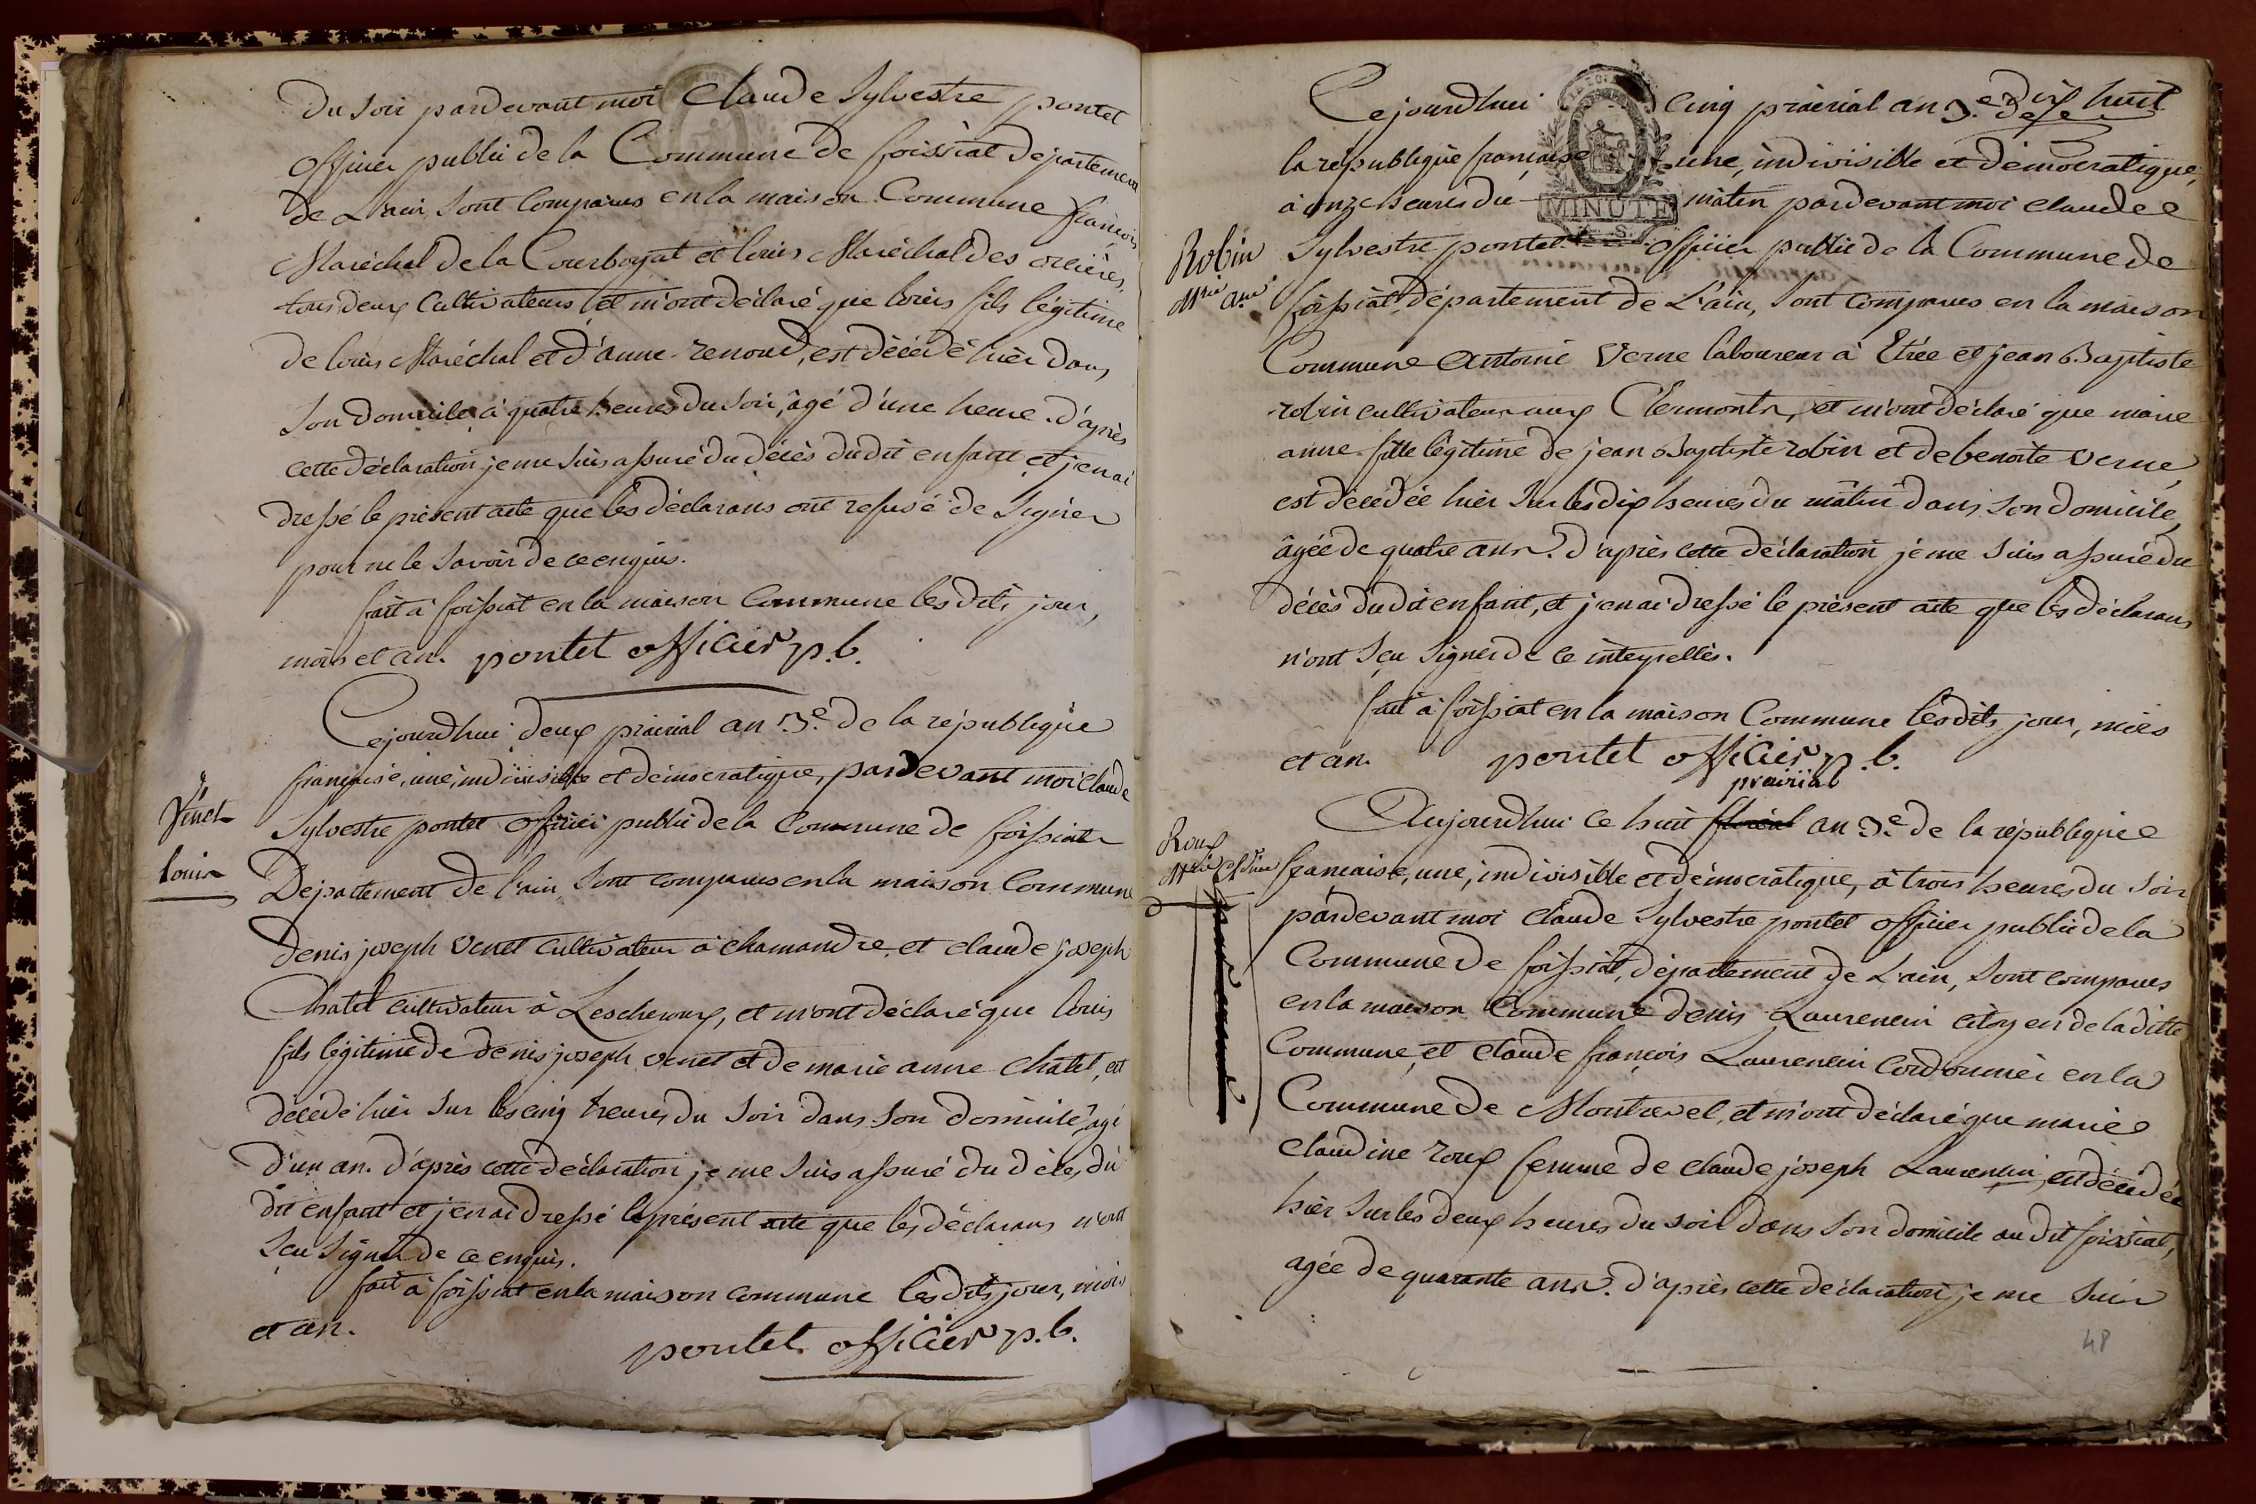 du soir pardevant moi Claude Sylvestre pontet
officier public de la Commune de foissiat departement
de L'ain, sont comparus en la maison Commune françois
Maréchal de la Courbogat et louis Maréchal des
tous deux Cultivateurs, et m'ont déclaré que louis fils légitime
de louis Maréchal et d'anne renoud, est décédé hier dans
son domicile à quatre heures du soir, âgé d'une heure. d'après
cette déclaration je me suis assuré du décès du dit enfant et j'en ai
dressé le présent acte que les déclarans ont refusé de Signer
pour ne le savoir de ce enquis.
fait à foissiat en la maison Commune lesdits jour,
mois et an. pontet officier p.b.
Cejourdhui deux prairial an 3e. de la république
française, une, indivisible et démocratique, pardevant moi Claude
Vénet
Sylvestre pontet officier public de la Commune de foissiat
louis
Departement de l'ain, sont comparus en la maison Commune
denis joseph venet cultivateur à chamandre, et claude joseph
Chatel cultivateur à Lescheroux, et m'ont déclaré que louis
fils légitime de denis joseph venet et de marie anne Chatel, est
décédé hier sur les cinq heures du soir dans son domicile, agé
d'un an. d'après cette déclaration je me suis assuré du décès du
dit enfant et j'en ai dressé le présent acte que les déclarans n'ont
sçu signer de ce enquis.
fait à foissiat en la maison commune lesdits jour, mois
et an.
pontet officier p.b.
Cejourdhui cinq prairial an 3.e de
la république française une, indivisible et démocratique,
à onze heures du matin pardevant moi claude
MINUTE
Robin
Mrie ane
Sylvestre pontet officier public de la Commune de
foissiat, département de L'ain, sont comparus en la maison
Commune antoine Verne laboureur à Etrée et jean Baptiste
robin cultivateur aux Clermonts, et m'ont déclaré que marie
anne fille légitime de jean Baptiste robin et de benoite verne,
est décedée hier sur les dix heures du matin dans son domicile,
âgée de quatre ans. d'après cette déclaration je me suis assuré du
décès du dit enfant, et j'en ai dressé le présent acte que les déclarans
n'ont sçu signer de ce interpellés.
fait à foissiat en la maison Commune lesdits jour, mois
et an. pontet officier p.b.
prairial
Aujourdhui ce huit floréal an 3e. de la république
Roux
Mrie Cldine
francaise, une, indivisible et démocratique, à trois heures du soir
pardevant moi Claude Sylvestre pontet officier public de la
Commune de foissiat, département de L'ain, sont comparus
en la maison Commune denis Laurencin citoyen de la ditte
Commune, et Claude françois Laurencin cordonnier en la
Commune de Montrevel, et m'ont déclaré que marie
Claudine roux femme de claude joseph Laurencin, est décédée
hier sur les deux heures du soir dans son domicile au dit foissiat,
agée de quarante ans. d'après cette déclaration je me suis
48